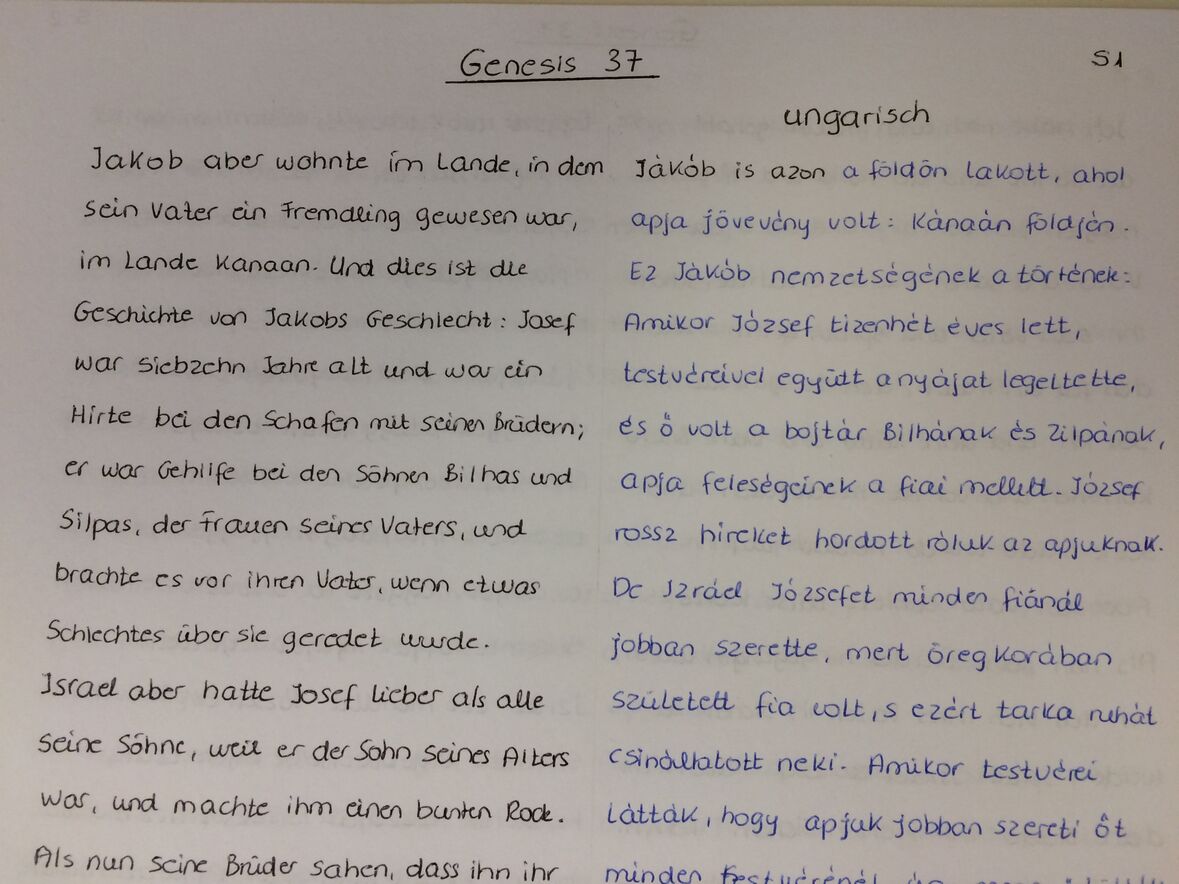 Genesis 37
S1
ungarisch
Jakob aber wohnte im Lande, in dem
sein Vater ein Fremdling gewesen war,
im Lande Kanaan. Und dies ist die
Geschichte von Jakobs Geschlecht: Josef
war siebzehn Jahre alt und war ein
Hirte bei den Schafen mit seinen Brüdern;
er war Gehlife bei den Söhnen Bilhas und
Silpas, der Frauen seines Vaters, und
brachte es vor ihren Vater, wenn etwas
Schlechtes über sie geredet wurde.
Israel aber hatte Josef lieber als alle
seine Söhne, weil er der Sohn seines Alters
war, und machte ihm einen bunten Rock.
Als nun seine Brüder sahen, dass ihn ihr
Jákób is azon a földön lakott, ahol
apja jövevény volt: Kánaán földjén.
Ez Jákób nemzetségének a történek:
Amikor József tizenhét éves lett,
testvéreivei együtt a nyájat legeltette,
és ő volt a bojtár Bilhának és Zilpának,
apja feleségeinek a fiai mellett. József
rossz híreket hordott róluk az apjuknak.
De Izráel Józsefet minden fiánál
jobban szerette, mert öreg korában
született fia volt, s ezért tarka ruhát
csináltatott neki. Amikor testvérei
látták, hogy apjuk jobban szereti őt
minden testvérénél